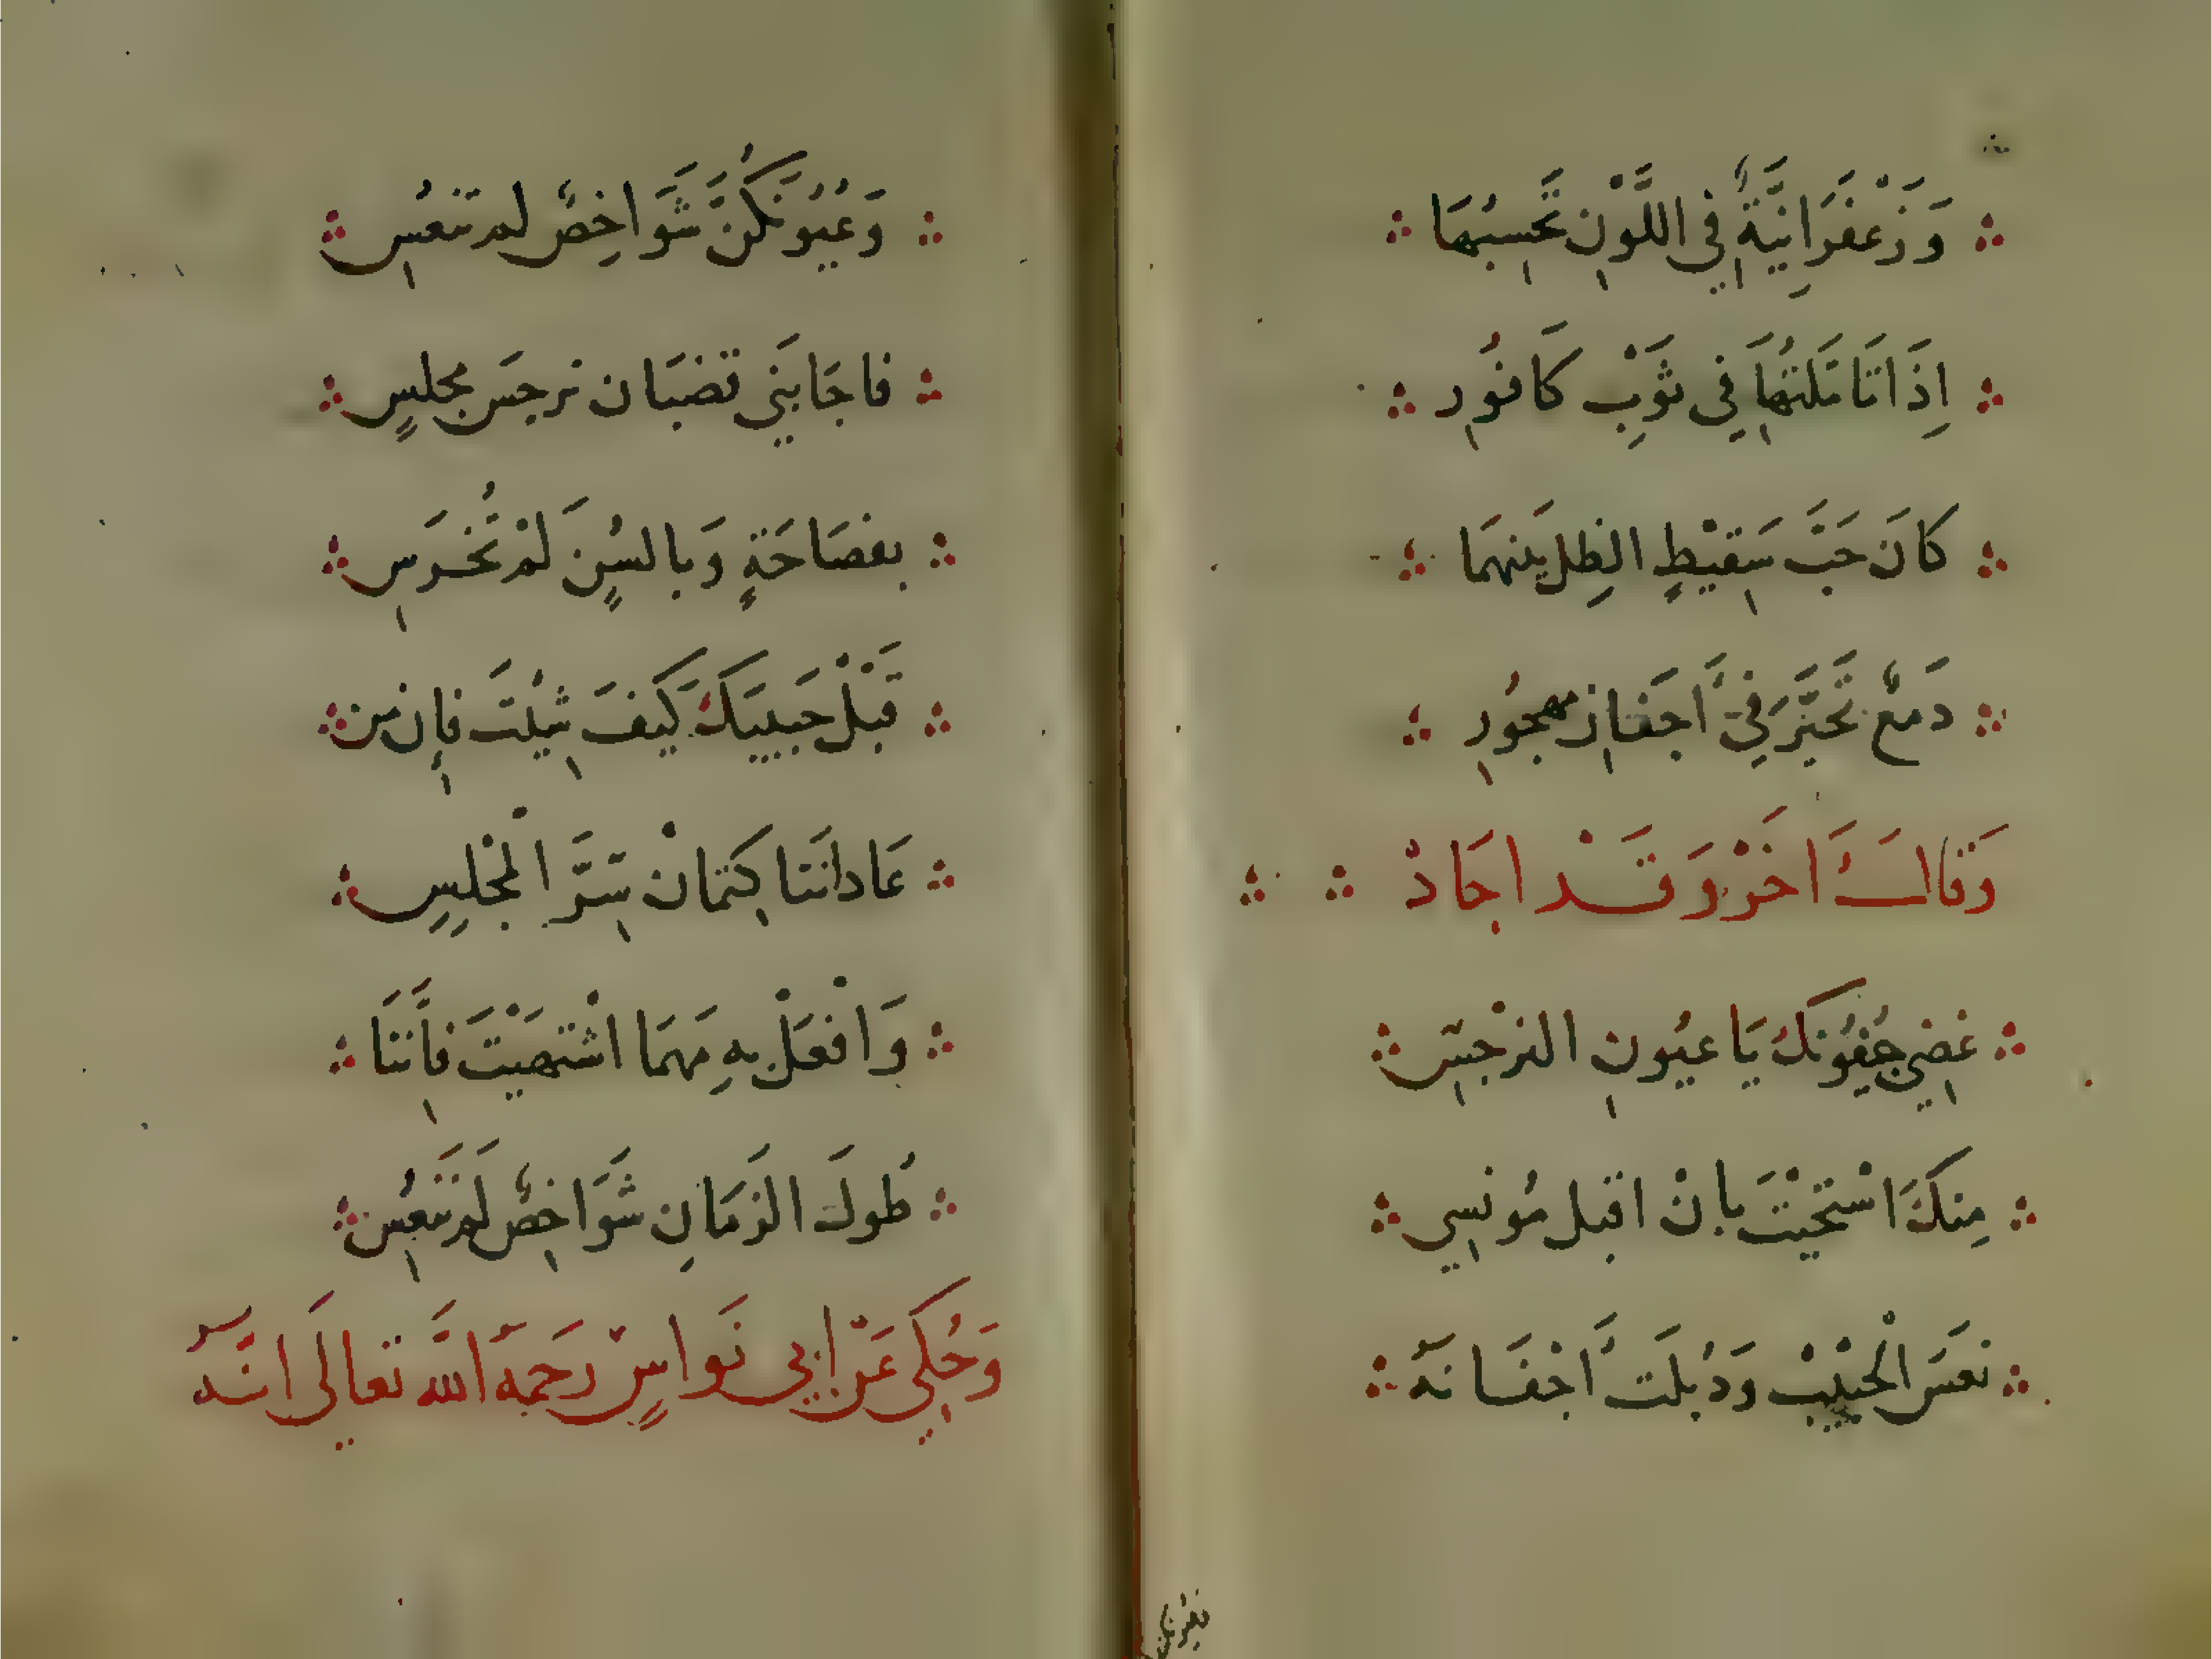 وَزَعْفَرَانِيَّةٌ فِي اللَّوْنِ تَحْسِبُهَا
اِذَا تَامَّلتَهَا فِي ثَوْبِ كَافُورِ
كَانَ حَبَّ سَقِيْطٍ الطِل بينهمَا
دَمعٌ تَحَيَّرَ فِي اَجفَانِ مهجُورِ
وَقَالَ اخَرْ وَقَدْ اجَادْ
غضِي جُفُونَكَ يَا عيُونِ النرْجِسِ
مِنكَ اسْتَحَيْتَ بانْ اقبل مُونسِي
نعَسَ الْحبيْبْ وَدُبلَتْ اَجْفَانهُ
وَعيُونكُنَّ شَوَاخِصٌ لم تنعُسِ
فاجَابَنِي قضبَان نرجس بمجلسٍ
بفصَاحَةٍ وَبالسُنٍ لَمْ تُخْرَسِ
قَبْل حَبيبَكَ كَيفَ شِئْتَ فإِن من
عَاداتنَا كتمَانْ سِرَّ الْمجْلسِ
وَافْعَلْ بهِ مَهمَا اشْتَهَيْتَ فَاِنَنَا
طُولَ الزمَانِ شَوَاخِصٌ لَم تَنعُسِ
وَحُكِي عَنْ ابي نَوَاسٍ رَحمَهُ اللَّه تعَالَى اَنَّهُ